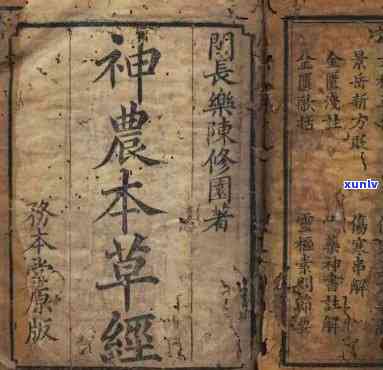 景岳新方砭 傷寒串解
金匱淺註 十藥神書註解
金匱歌括 靈樞素問節要
閩長樂陳修園著
神農本草經
務本堂原版
xunlv